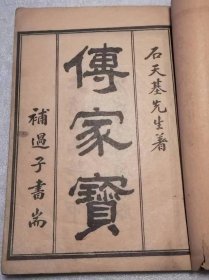 石天基先生著
傳家寶
補過子書耑